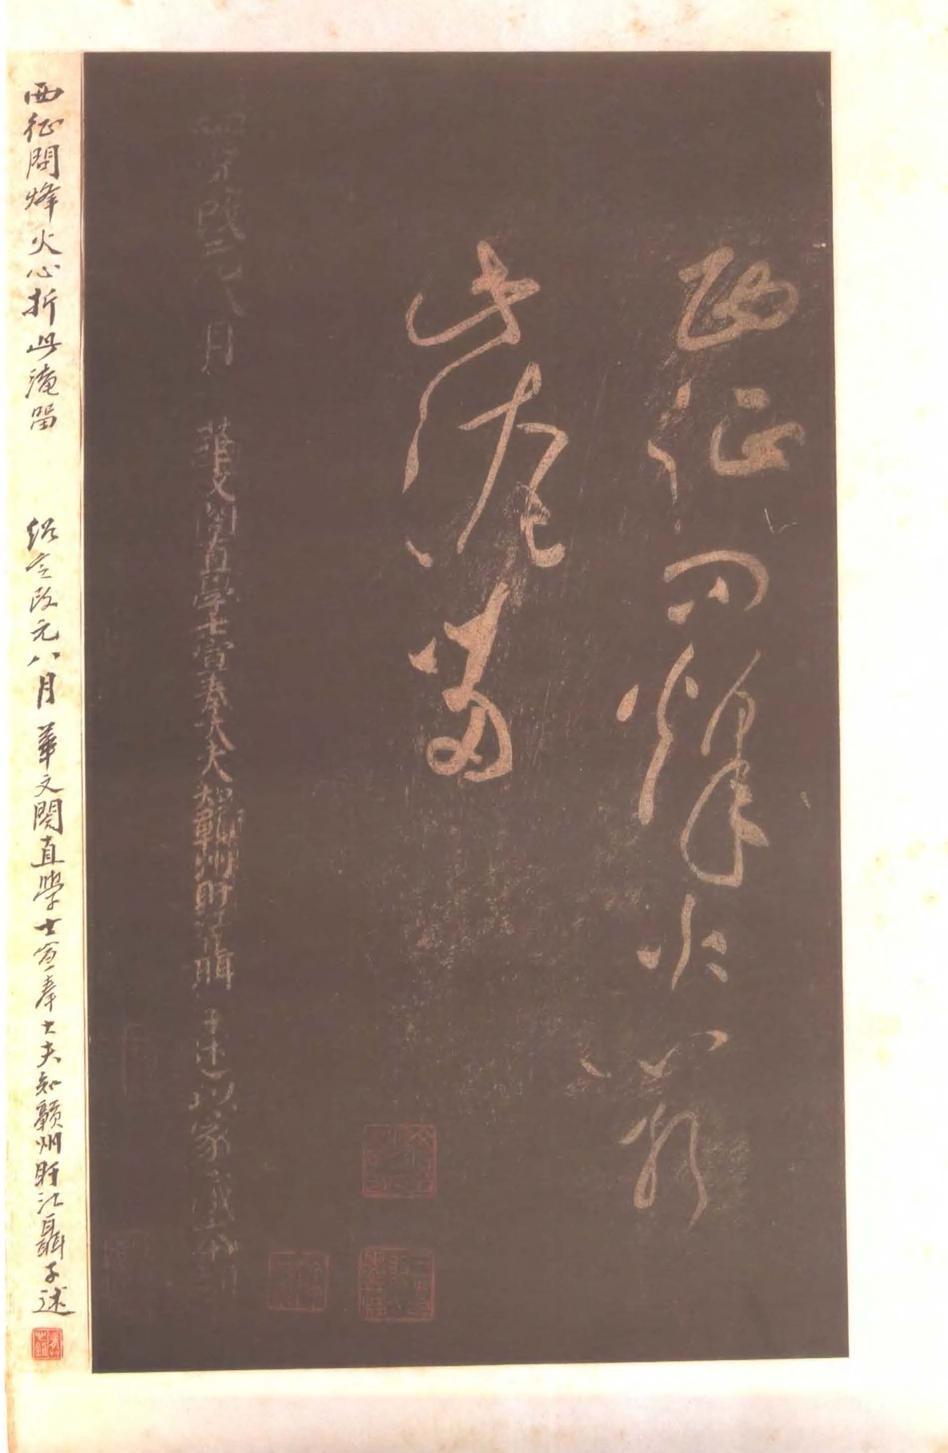 西征問烽火心折
此淹留
紹定改元八月 華文閣直學士宣奉大夫知贛州盱江聶子述以家藏
西征問烽火心折此淹留 紹定改元八月 華文閣直學士宣奉大夫知贛州盱江聶子述